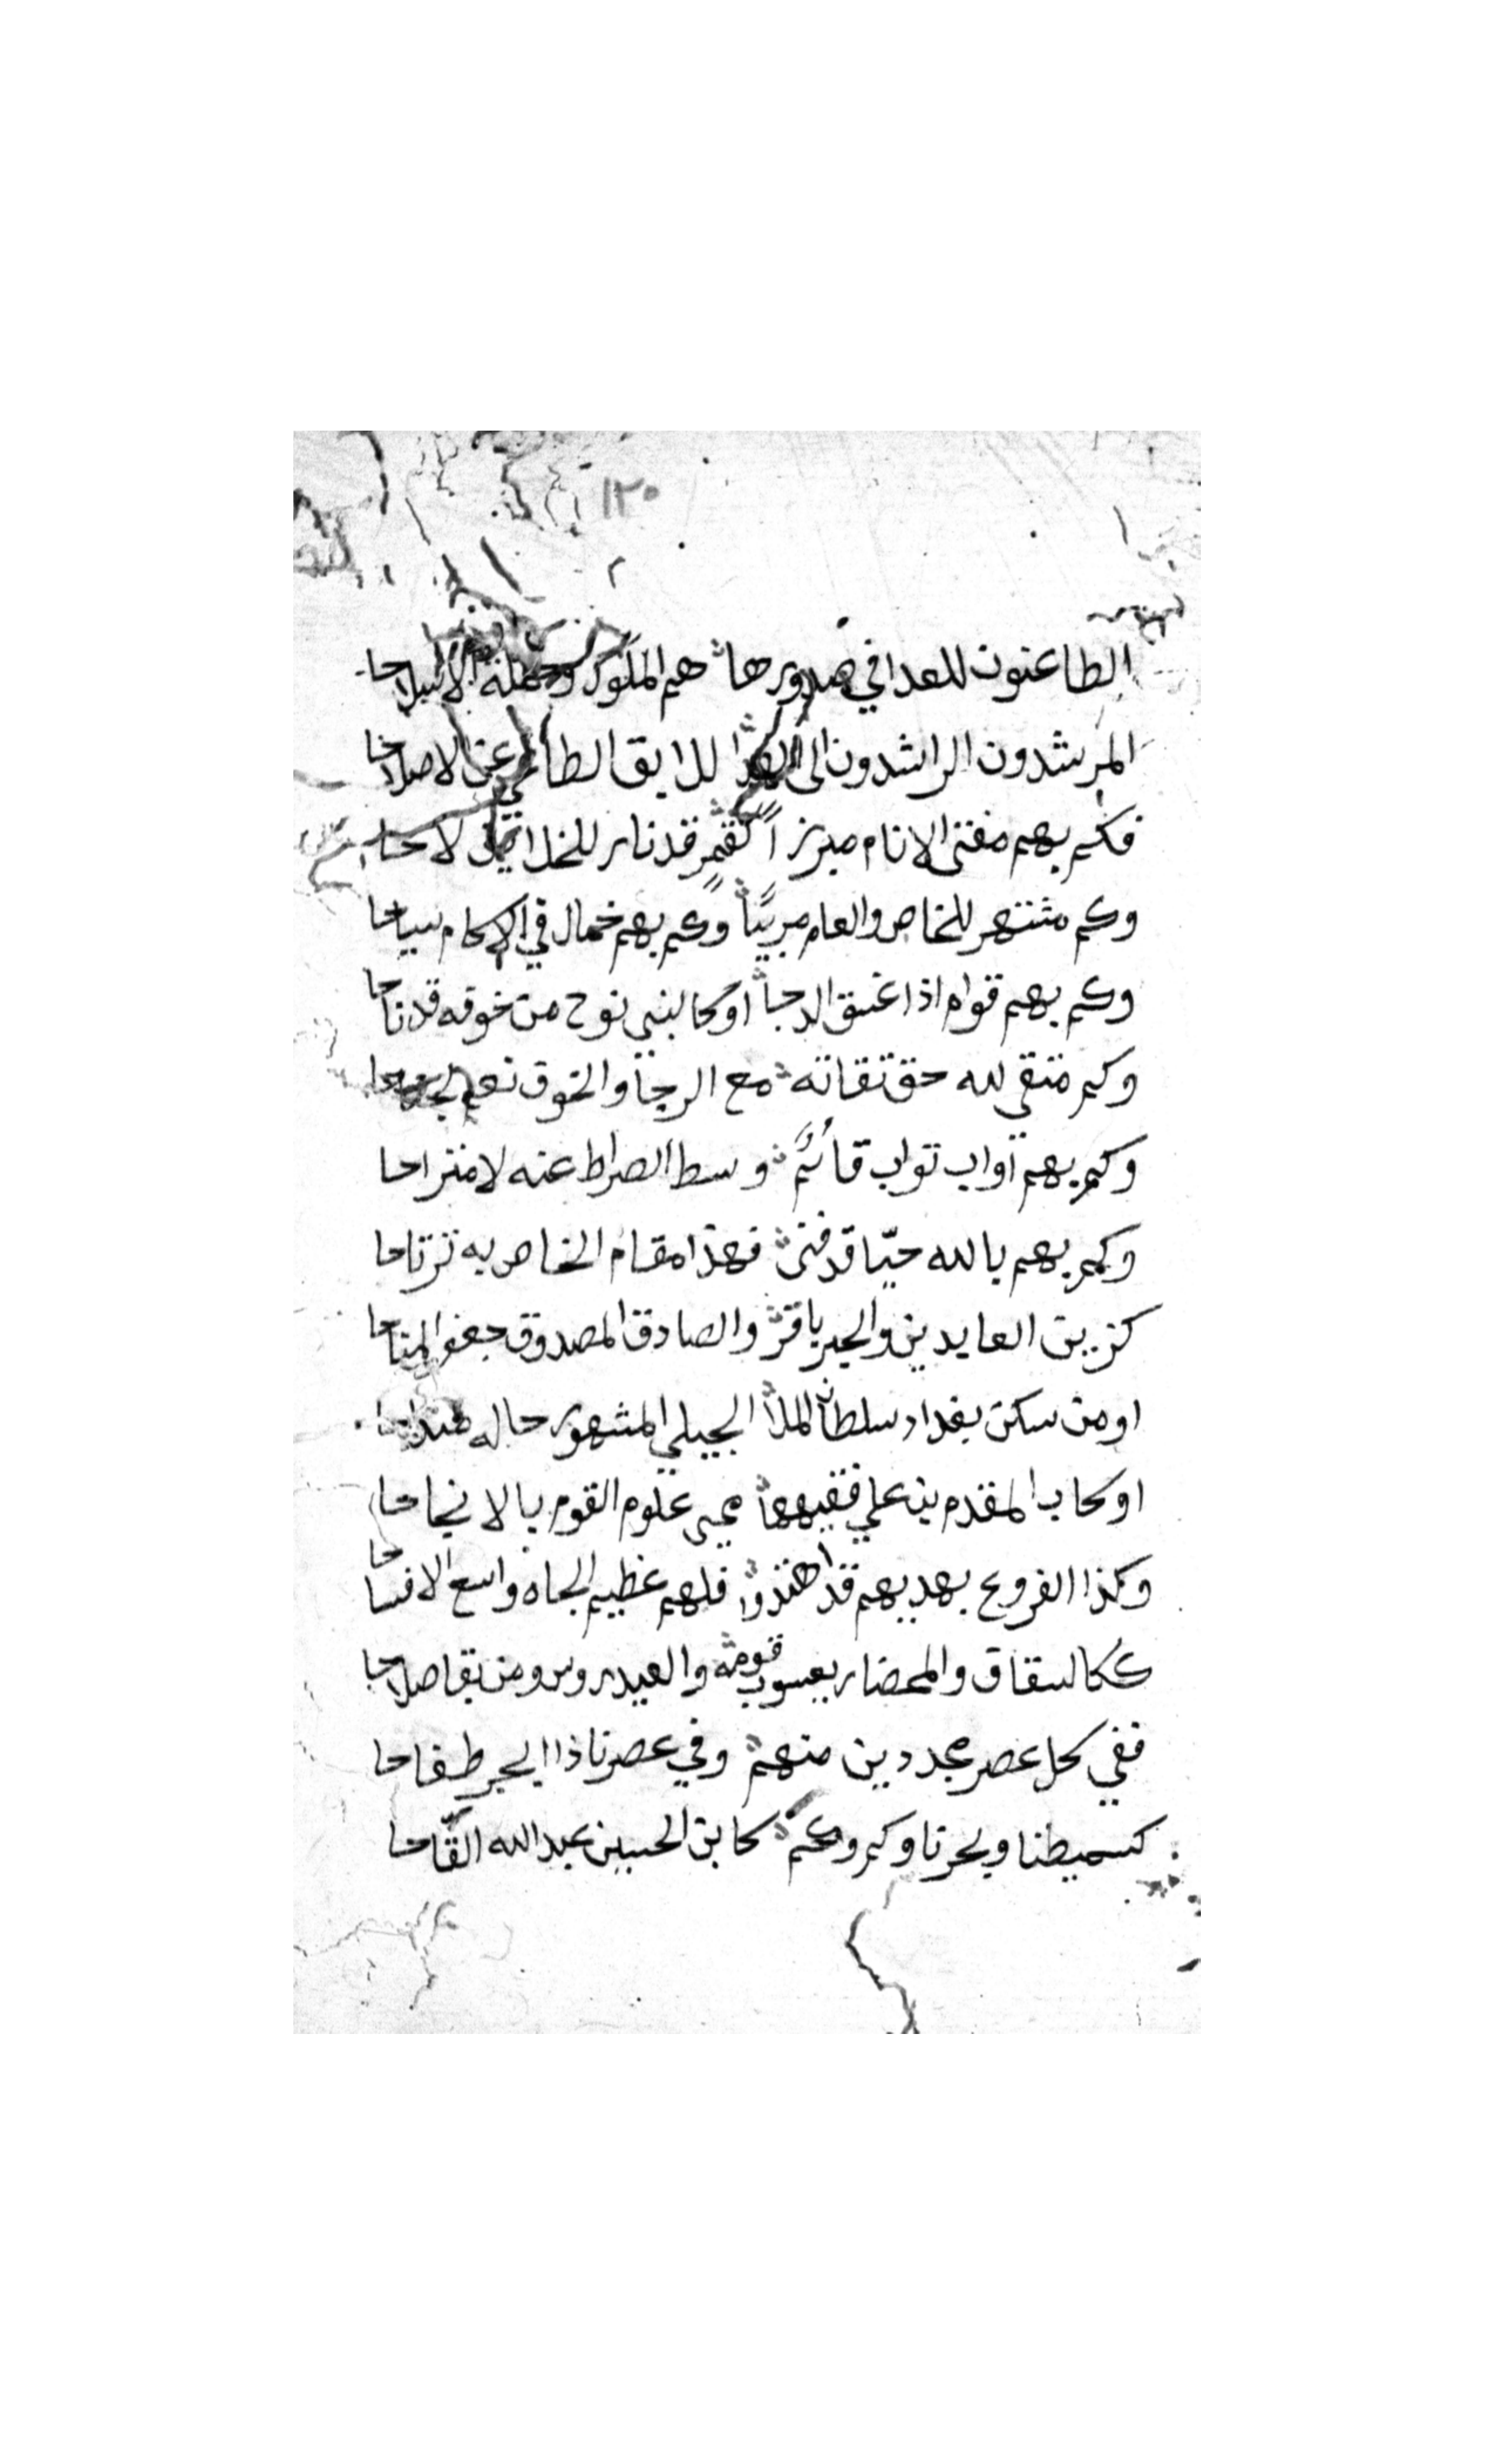 ١٢٠
الطاعنون للعدا في صدورها هم الملوك وحملة الاسلاحا
المرشدون الراشدون الى الهدا للايق الطامي عن الاصلاحا
فكم بهم مفتى الانام مبرزاً كقمرٍ قد نار للخل لاحا
وكم مشتهر للخاص والعام مربياً وكم بهم خمال في الاكام سياحا
وكم بهم قوام اذا غسق الدجا او كالنبي نوح من خوفه قد ناحا
وكم متقي لله حق تقاته مع الرجا والخوف نعم
وكم بهم آواب تواب قائم وسط الصراط عنه لا منزاحا
وكم بهم بالله حيّا قد فنى فهذا مقام الخاص به ترتاحا
كزين العابدين والحبر باقر والصادق المصدوق جعفر المتاحا
او من سكن بغداد سلطان الملا الجيلي المشهور حاله
او كاب المقدم بن علي فقيهها محيى علوم القوم بالانجاحا
وكذا الفروع بهديهم قد اهتدوا فلهم عظيم الجاه واسع الافساحا
كالسقاف والمحضار يعسوب قومه والعيدروس ومن بقا صلاحا
ففي كل عصر مجددين منهم وفي عصرنا ذا البحر طفاحا
كسميطنا وبحرنا وكم وكم كابن الحسين عبد الله القّاحا